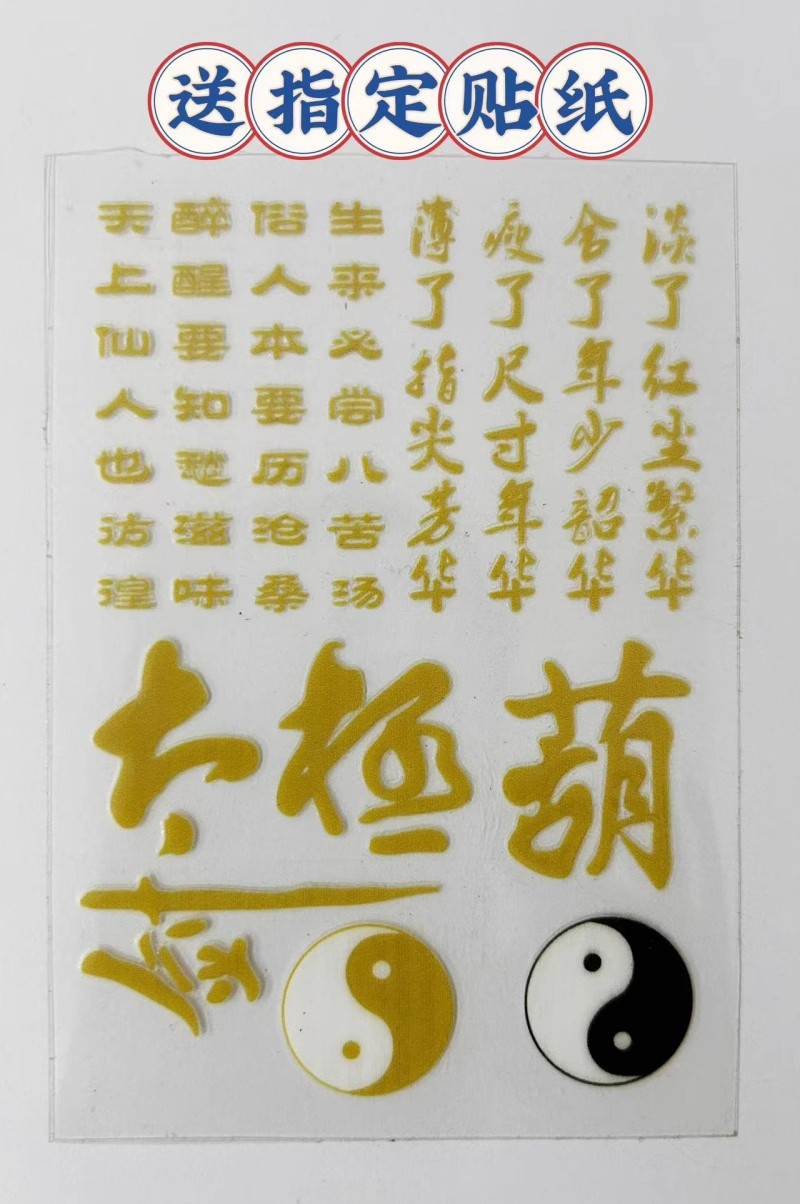 送指定贴纸
淡了红尘繁华
舍了年少韶华
瘦了尺寸年华
薄了指尖芳华
生来必尝八苦汤
俗人本要历沧桑
醉醒要知愁滋味
天上仙人也彷徨
太極
劍
葫